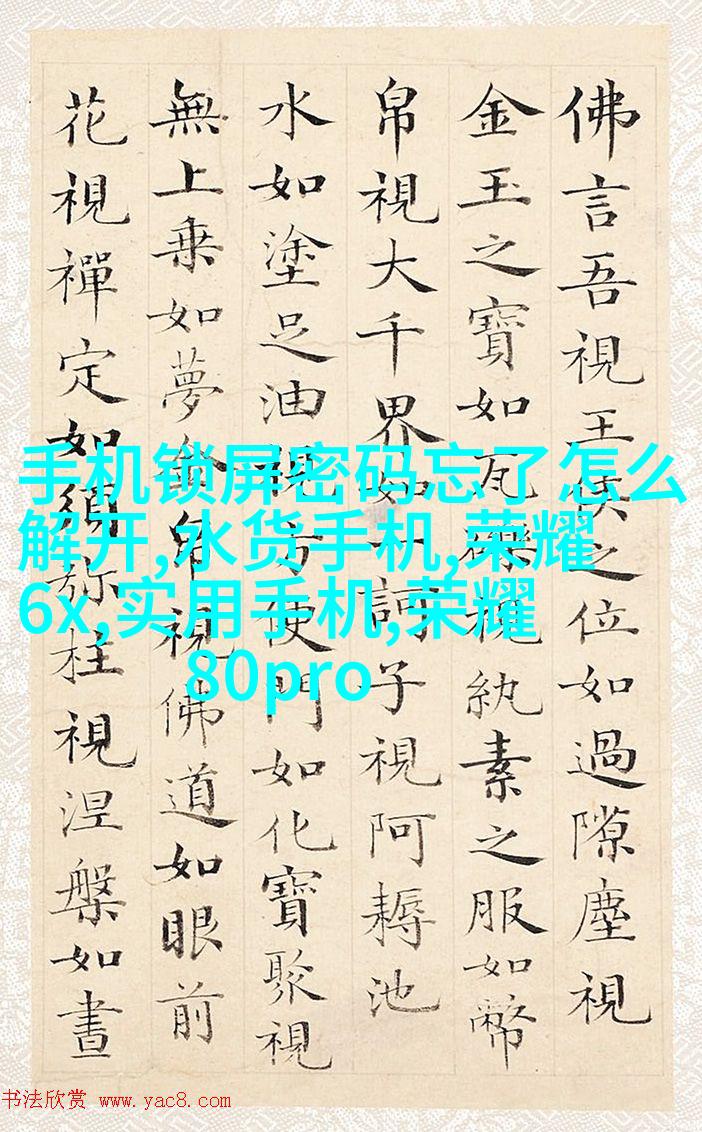 佛言吾視王侯之位如過隙塵視
金玉之寶如瓦礫視紈素之服如幣
帛視大千界如一訶子視阿耨池
水如塗足油視方便門如化寶聚視
無上乗如夢金帛視佛道如眼前
花視禪定如須弥柱視涅槃如晝
手机锁屏密码忘了怎么
解开,水货手机,荣耀
6x,实用手机,荣耀
80pro
书法欣赏 www.yac8.com